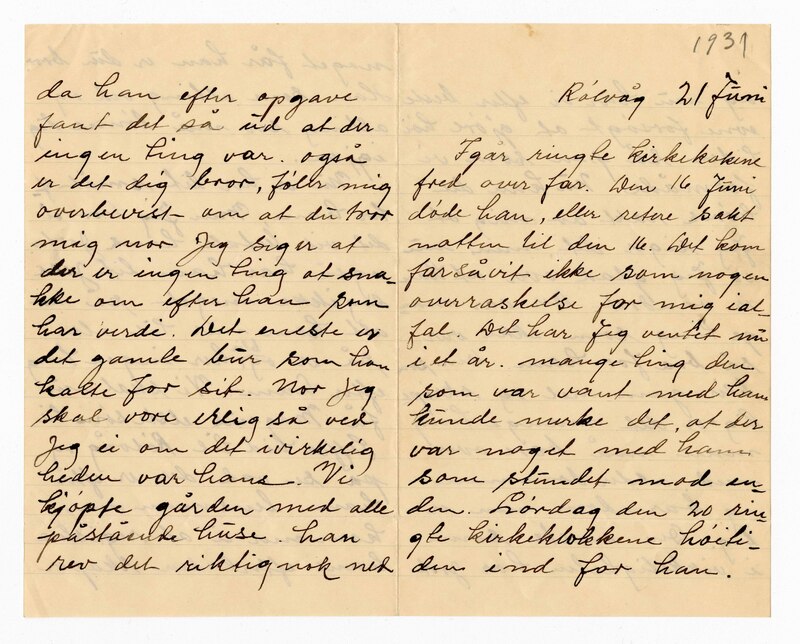 1931
Rólvåg 21 Juni
Igår ringte kirkekokene
fred over far. Den 16 Juni
døde han, eller retere sakt
natten til den 16. Det kom
fårsåvit ikke som nogen
overraskelse for mig ial-
fal. Det har Jeg ventet nu
i et år. mange ting den
som var vant med ham
kunde merke det, at der
var noget med ham
som stundet mod en-
den. Lørdag den 20 rin-
gte kirkeklokkene høiti-
den ind for han.
da han efter opgave
fant det så ud at der
ingen ting var. også
er det dig bror, føler mig
overbevist om at du tror
mig nor Jeg siger at
der er ingen ting at sna-
kke om efter han som
har verdi. Det eneste er
det gamle bur som han
kalte for sit. Nor Jeg
skal vore erlig så ved
Jeg ei om det ivirkelig
heden var hans. Vi
kjøpte gården med alle
påstående huse. han
rev det riktignok ned